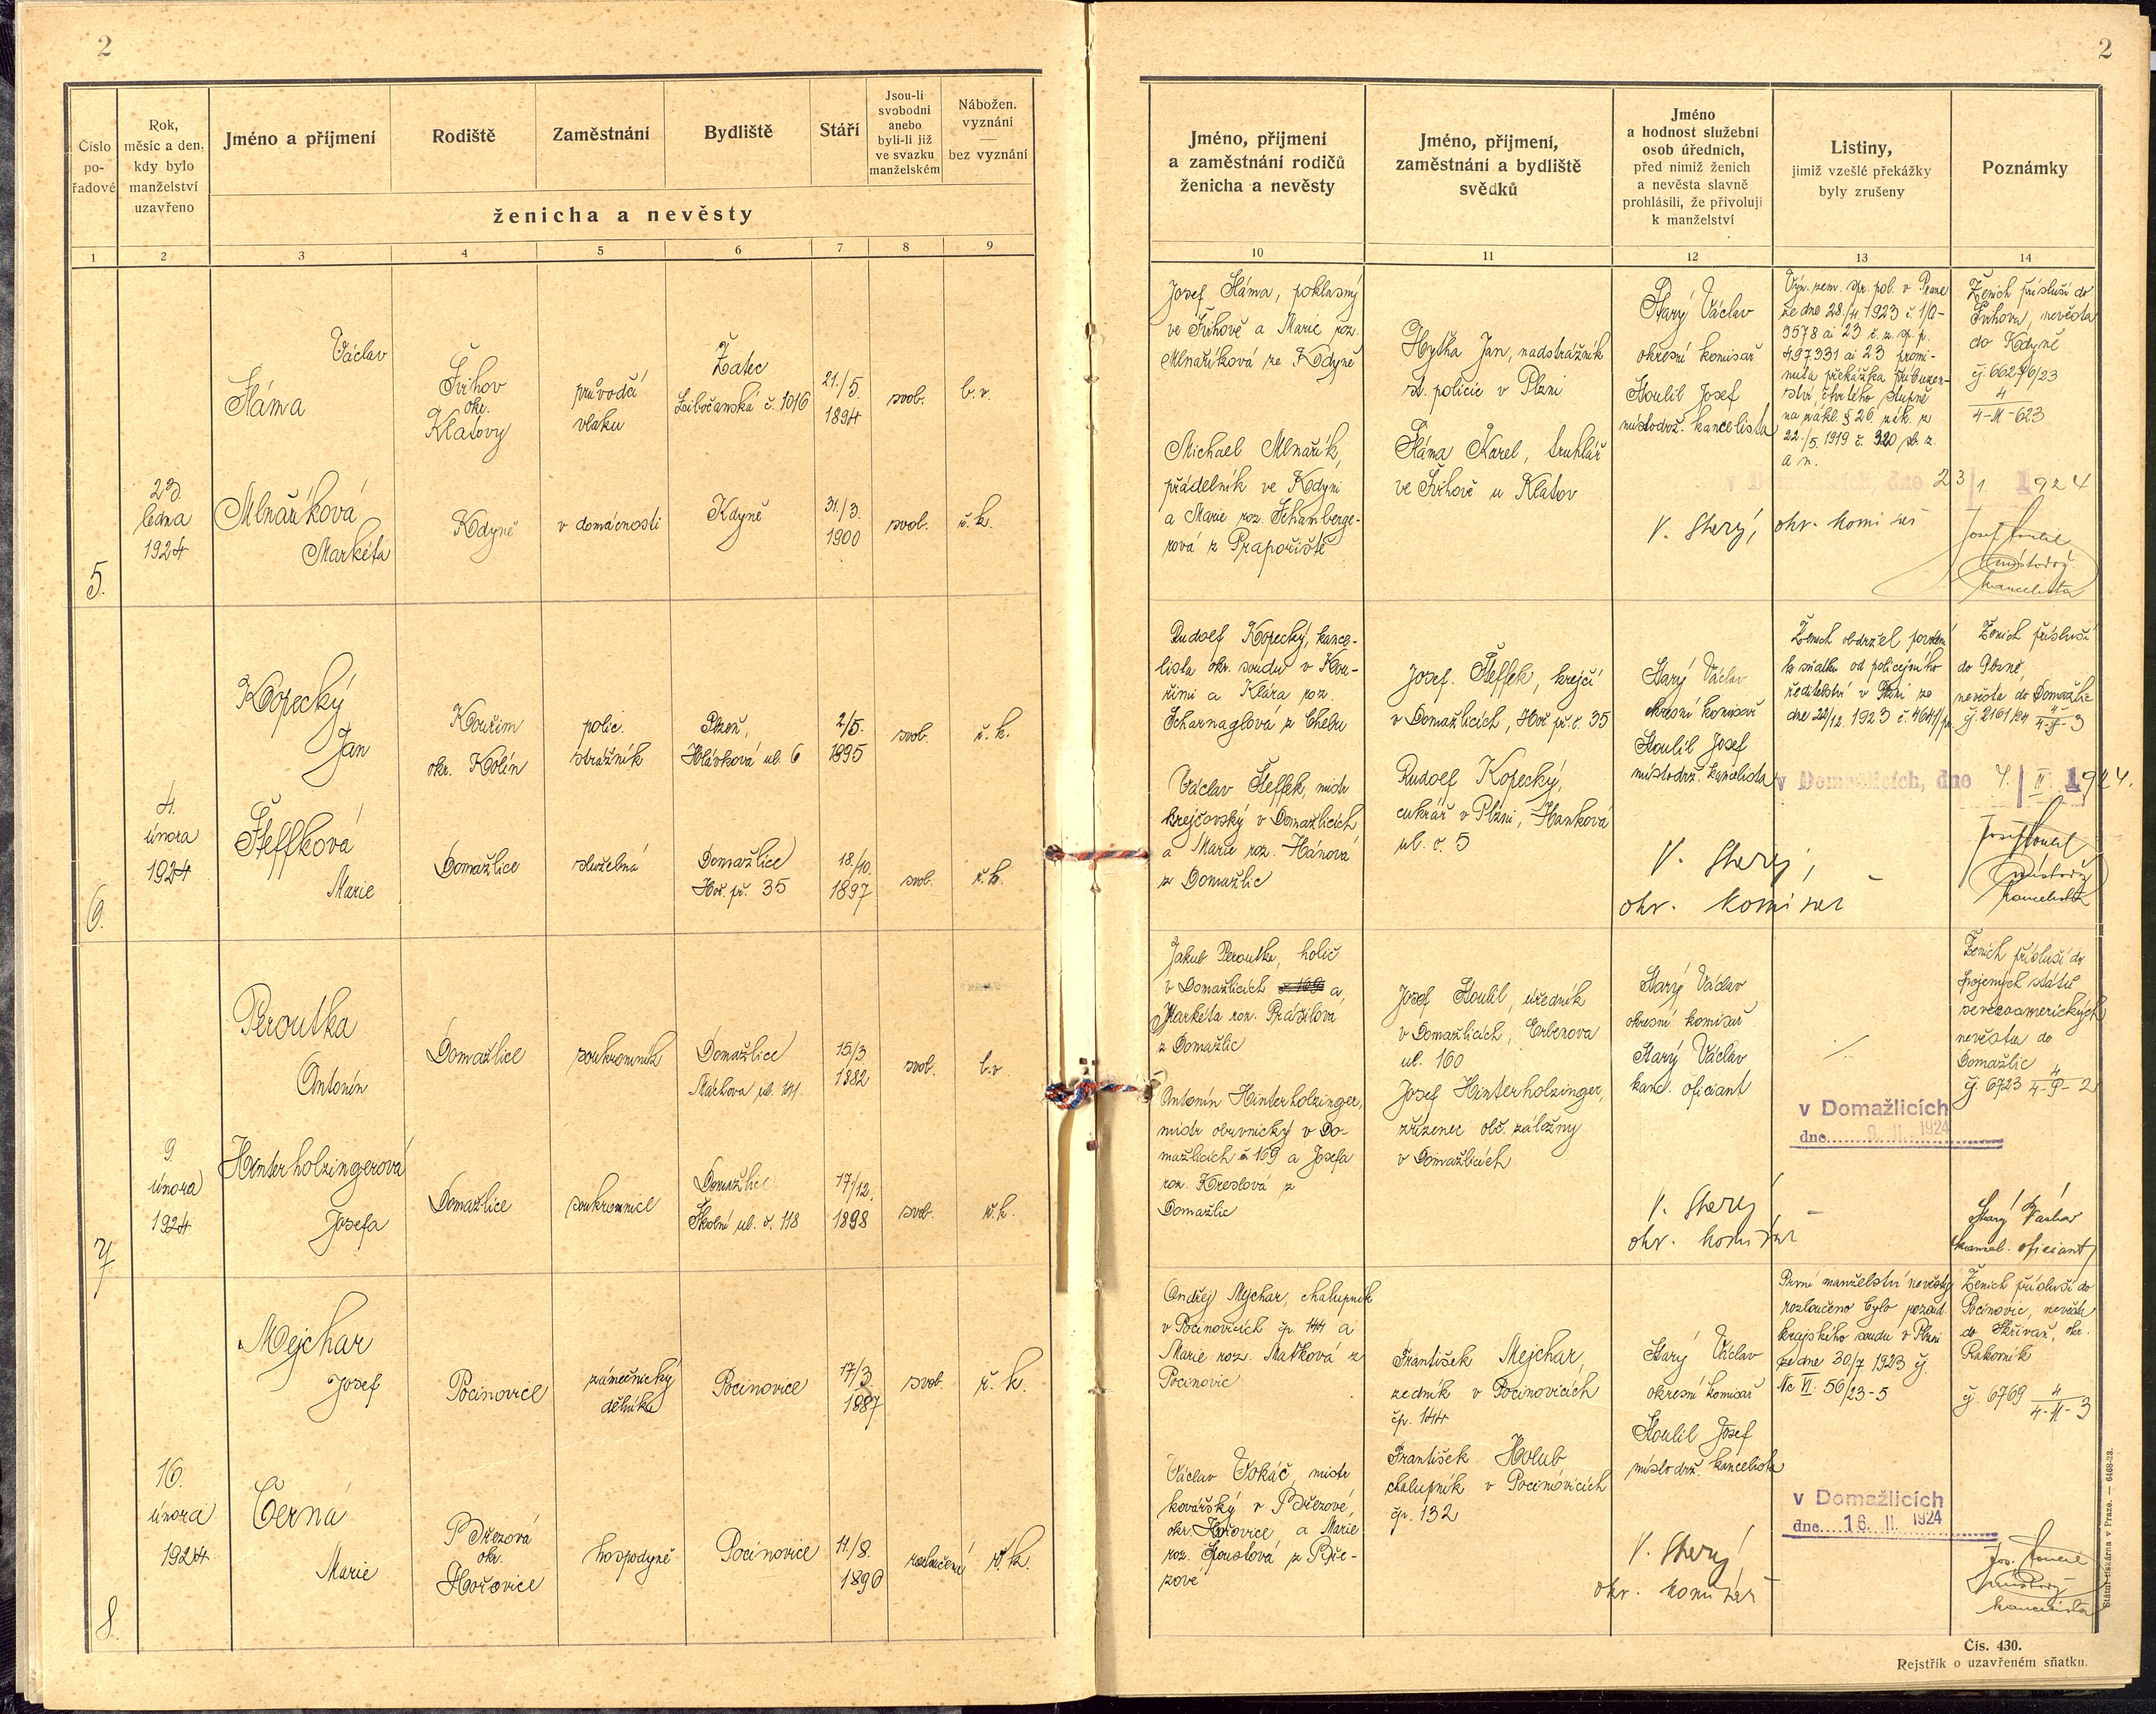 2
2
Číslo pořadové
Rok, měsíc a den, kdy bylo manželství uzavřeno
Jméno a příjmení
Rodiště
Zaměstnání
Bydliště
Stáří
Jsou-li svobodni anebo byli-li již ve svazku manželském
Nábožen. vyznání — bez vyznání
ženicha a nevěsty
Jméno, příjmení a zaměstnání rodičů ženicha a nevěsty
Jméno, příjmení, zaměstnání a bydliště svědků
Jméno a hodnost služební osob úředních, před nimiž ženich a nevěsta slavně prohlásili, že přivolují k manželství
Listiny, jimiž vzešlé překážky byly zrušeny
Poznámky
1 2 3 4 5 6 7 8 9 10 11 12 13 14
5.
23.
ledna
1924
Václav
Sláma
Švihov
okr.
Klatovy
průvodčí
vlaku
Žatec
Libočanská č. 1016
21./5.
1894
svob.
b. v.
Mlnaříková
Markéta
Kdyně
v domácnosti
Kdyně
31./3.
1900
svob.
ř. k.
Josef Sláma, poklasný
ve Švihově a Marie roz.
Mlnaříková ze Kdyně
Michael Mlnařík,
přádelník ve Kdyni
a Marie roz. Schamberge-
rová z Prapořiště
Hytka Jan, nadstrážník
st. policie v Plzni
Sláma Karel, truhlář
ve Švihově u Klatov
Starý Václav
okresní komisař
Stoulil Josef
místodrž. kancelista
Výn. zem. spr. pol. v Praze
ze dne 28./11. 1923 č. 1/a-
9578 ai 23 č. z. sp. p.
497331 ai 23 promi-
nuta překážka příbuzen-
ství čtvrtého stupně
na zákl. § 26 zák. z
22./5. 1919 č. 320 sb. z.
a n.
Ženich přísluší do
Švihova, nevěsta
do Kdyně
čj. 66276/23
4
4-11-623
v Domažlicích, dne 23/1. 1924
V. Starý, okr. komisař
Josef Stoulil
místodrž.
kancelista
6.
4.
února
1924
Kopecký
Jan
Kouřim
okr. Kolín
polic.
strážník
Plzeň,
Hlávková ul. 6
2/5.
1895
svob.
ř. k.
Šteffková
Marie
Domažlice
služebná
Domažlice
Hoř. př. 35
18./10.
1897
svob.
ř. k.
Rudolf Kopecký, kance-
lista okr. soudu v Kou-
řimi a Klára roz.
Scharnaglová z Chebu
Václav Šteffek, mistr
krejčovský v Domažlicích
a Marie roz. Hánová
z Domažlic
Josef Šteffek, krejčí
v Domažlicích, Hoř. př. č. 35
Rudolf Kopecký,
cukrář v Plzni, Hanková
ul. č. 5
Starý Václav
okresní komisař
Stoulil Josef
místodrž. kancelista
Ženich obdržel povolení
ke sňatku od policejního
ředitelství v Plzni ze
dne 22/12. 1923 č. 4641/pr.
Ženich přísluší
do Plzně,
nevěsta do Domažlic
čj. 2161/24
v Domažlicích, dne 4./II 1924.
V. Starý,
okr. komisař
Josef Stoulil
místodrž.
kancelista
7
9.
února
1924
Peroutka
Antonín
Domažlice
soukromník
Domažlice
Máchova ul. 141
15/3
1882
svob.
b. v.
Hinterholzingerová
Josefa
Domažlice
soukromnice
Domažlice
Školní ul. č. 118
17/12.
1898
svob.
ř. k.
Jakub Peroutka, holič
v Domažlicích a
Markéta roz. Prášilová
z Domažlic
Antonín Hinterholzinger,
mistr obuvnický v Do-
mažlicích č 169 a Josefa
roz. Kreslová z
Domažlic
Josef Stoulil, úředník
v Domažlicích, Erbenova
ul. 160
Josef Hinterholzinger,
zřízenec obč. záložny
v Domažlicích
Starý Václav
okresní komisař
Starý Václav
kanc. oficiant
./.
Ženich přísluší do
Spojených států
severoamerických
nevěsta do
Domažlic
čj. 6723 4
4-9-2
v Domažlicích
dne 9. II. 1924
V. Starý
okr. komisař
Starý Václav
kancel. oficiant
8.
16.
února
1924
Mejchar
Josef
Pocinovice
zámečnický
dělník
Pocinovice
17/3.
1887
svob.
ř. k.
Černá
Marie
Březová
okr.
Hořovice
hospodyně
Pocinovice
11/8.
1890
rozloučená
ř. k.
Ondřej Mejchar, chalupník
v Pocinovicích čp. 144 a
Marie roz. Matková z
Pocinovic
Václav Vokáč, mistr
kovářský v Březové,
okr. Hořovice a Marie
roz. Šoustová z Bře-
zové
František Mejchar,
zedník v Pocinovicích
čp. 144
František Holub
chalupník v Pocinovicích
čp. 132
Starý Václav
okresní komisař
Stoulil Josef
místodrž. kancelista
První manželství nevěsty
rozloučeno bylo rozsud.
krajského soudu v Plzni
ze dne 30/7 1923 čj.
Nc VI. 56/23-5
Ženich přísluší do
Pocinovic, nevěsta
do Skřivaň, okr.
Rakovník
čj. 6769 4
4-11-3
v Domažlicích
dne 16. II. 1924
V. Starý
okr. komisař
Jos. Stoulil
místodrž.
kancelista
Státní tiskárna v Praze. — 6468-23.
Čís. 430.
Rejstřík o uzavřeném sňatku.